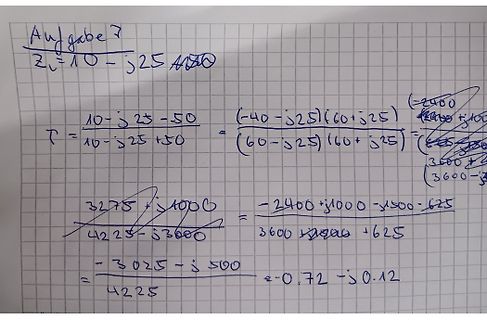 Aufgabe 7
Z_L = 10 - j25
r = (10 - j25 - 50) / (10 - j25 + 50) = (-40 - j25)(60 + j25) / (60 - j25)(60 + j25) =
3275 + j1000 / 4225 - j3000 = -2400 + j1000 - j1500 - 625 / 3600 + 625
= -3025 - j500 / 4225 = -0.72 - j0.12